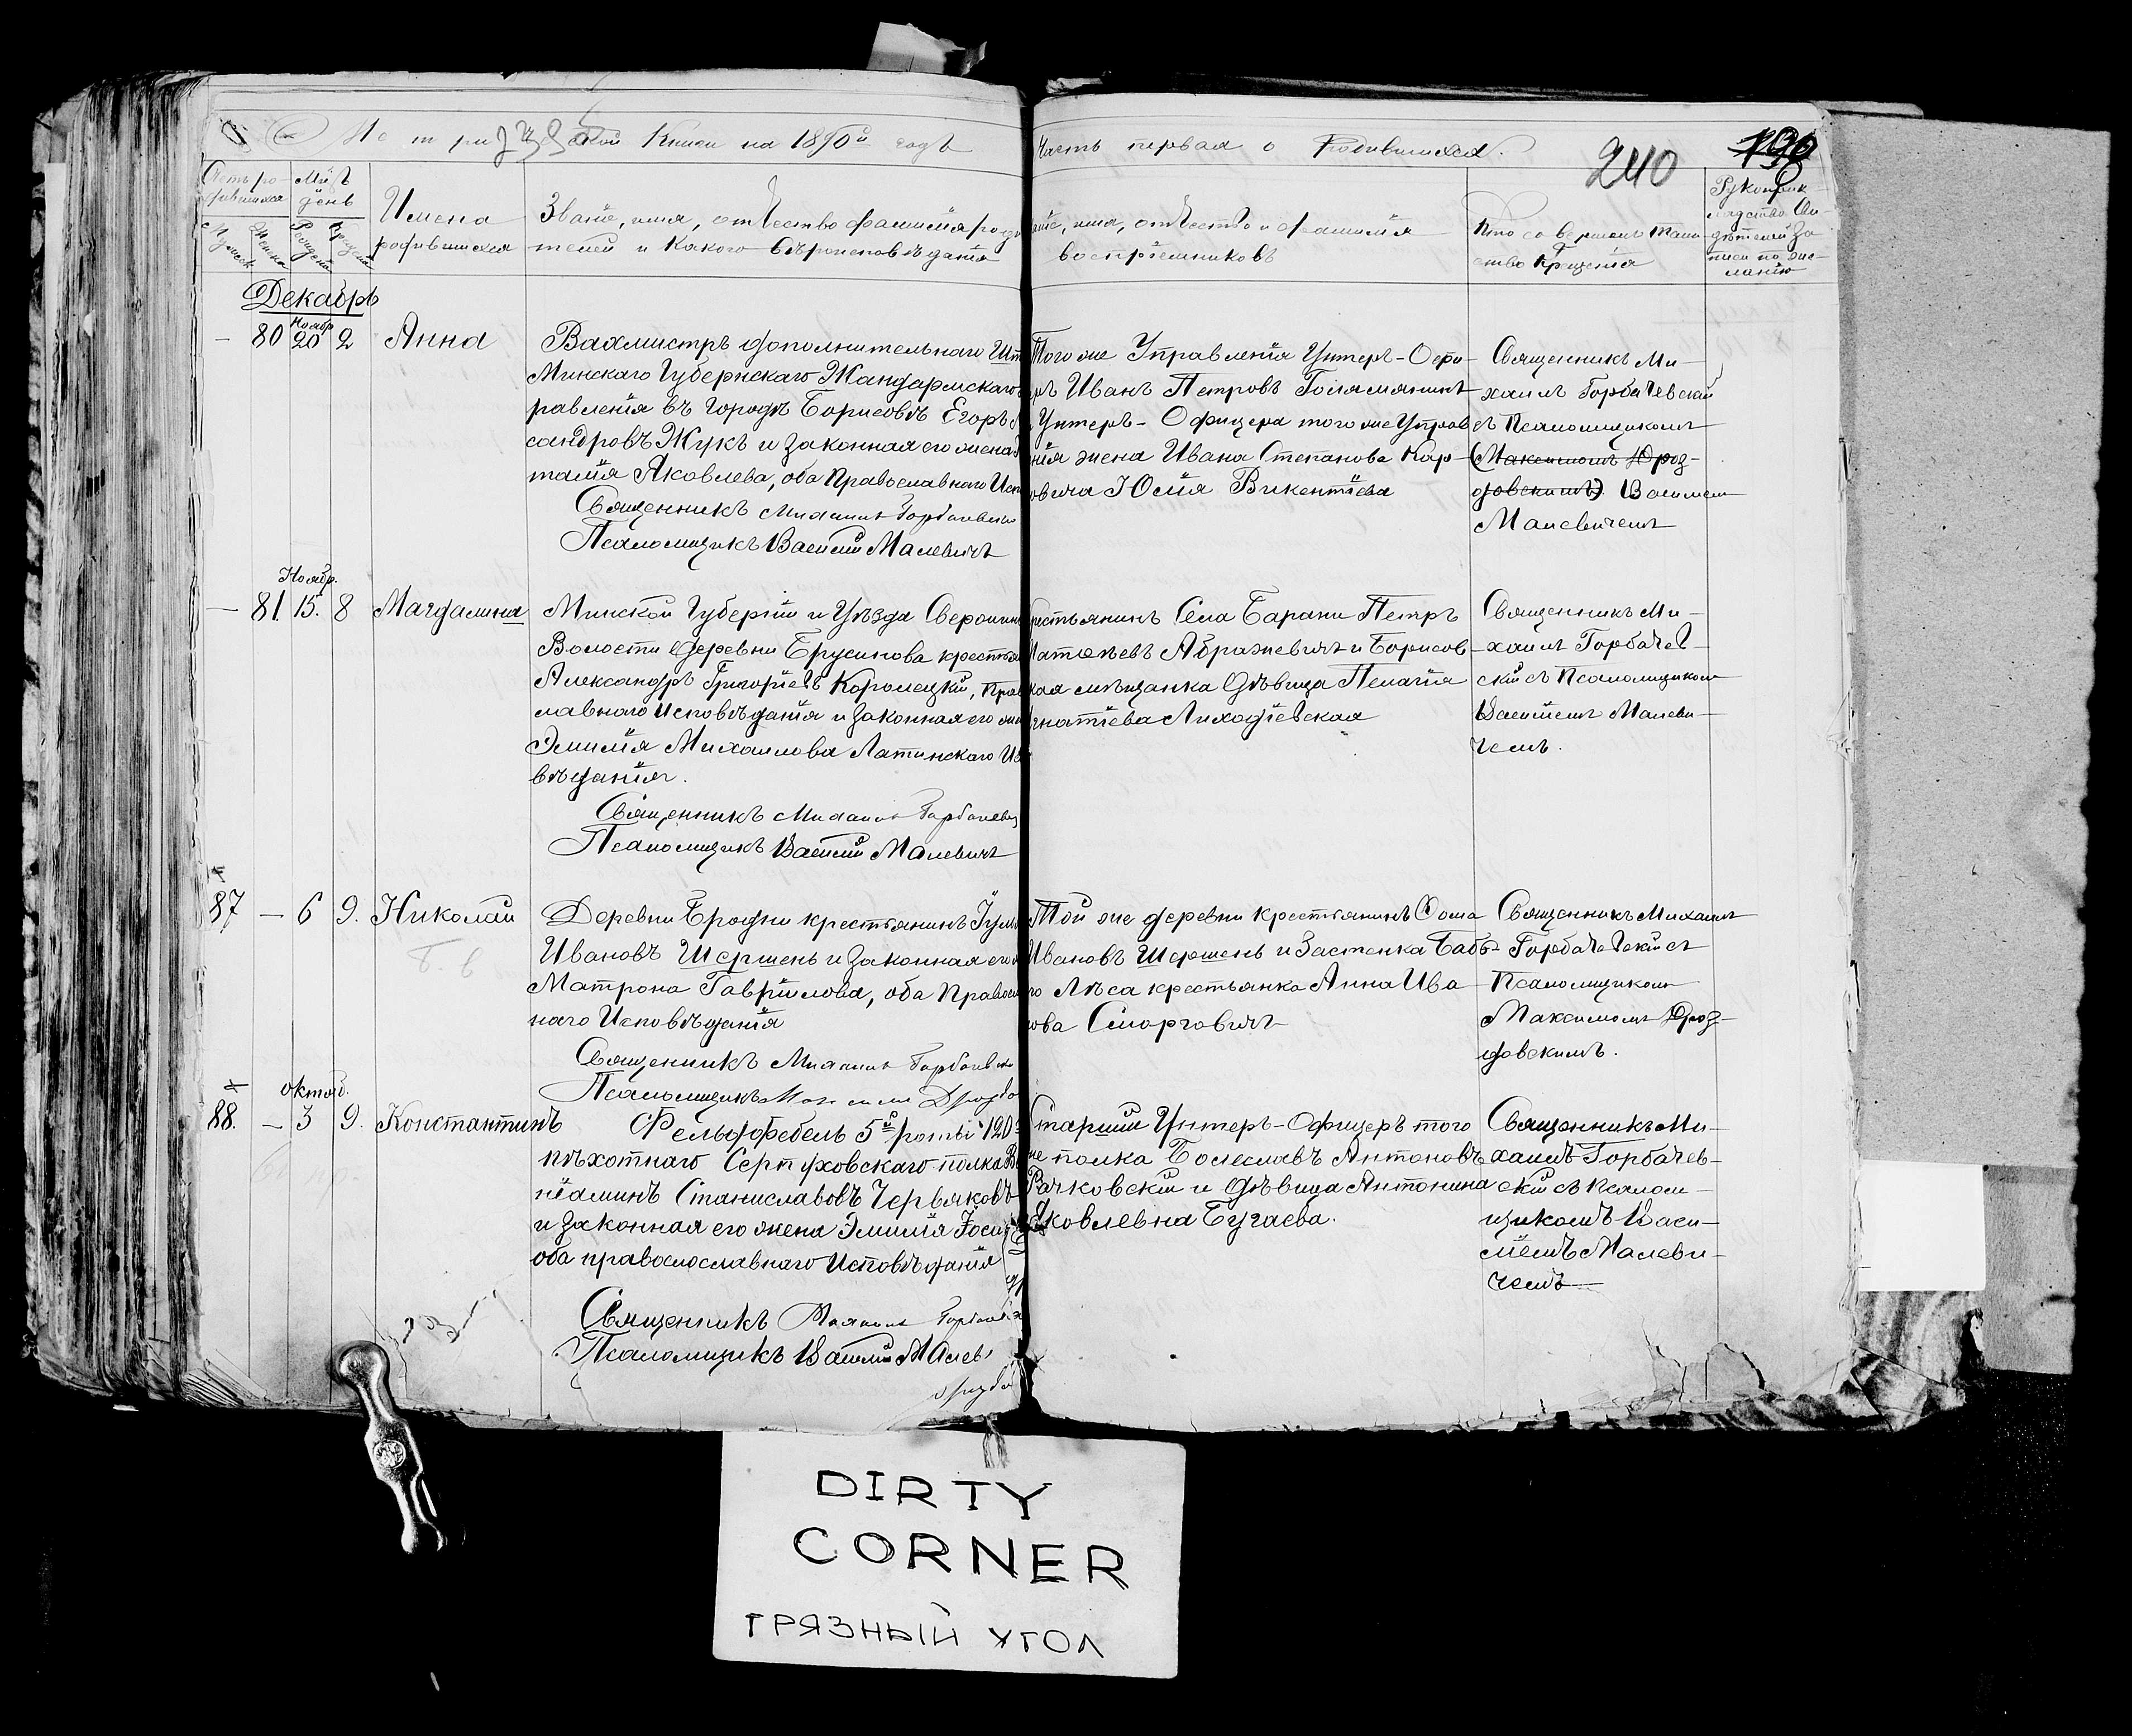 Метрической Книги на 1890й годъ
Часть первая о Родившихся.
240
190
Счетъ ро-
дившихся
Мѣсяцъ
день
Имена
родившихся
Званіе, имя, отчество фамилія роди
телей и какого вѣроисповѣданія
аніе, имя, отчество и фамилія
воспріемниковъ
Кто совершалъ таин
ство Крещенія
Рукоприк-
ладство сви-
дѣтелей за-
писи по же-
ланію
Декабрь
Ноябр
– 80 20 2 Анна
Вахмистръ дополнительнаго Шт
Минскаго Губернскаго Жандармскаго
равленія въ городѣ Борисовѣ Егоръ
сандровъ Жукъ и законная его жена
талія Яковлева, оба Православнаго Исп
Священникъ Михаилъ Горбачевскій
Псаломщикъ Василій Малевичъ
Того же Управленія Унтеръ-Офи-
ръ Иванъ Петровъ
Унтеръ-Офицера того же Управ
нія жена Ивана Степанова Кар-
овича Юлія Викентіева
Священникъ Ми-
хаилъ Горбачевскій
съ Псаломщикомъ
(Максимомъ Дроз-
довскимъ) Василіем
Малевичемъ
Ноябр.
– 81. 15. 8 Магдалина
Минской Губерніи и Уѣзда
Волости деревни Брусинова крестья
Александръ Григорьевъ Королецкій, Прав
лавнаго Исповѣданія и законная его жен
Эмилія Михаилова Латинскаго Ис
вѣданія.
Священникъ Михаилъ Горбачевск
Псаломщикъ Василій Малевичъ
рестьянинъ Села Барани Петръ
Матѳѣевъ Абражевичъ и Борисов-
кая мѣщанка дѣвица Пелагія
гнатіева Лиходіевская
Священникъ Ми-
хаилъ Горбачев-
скій съ Псаломщиком
Василіемъ Малеви-
чемъ.
87 – 6 9. Николай
Деревни Бродни крестьянинъ
Ивановъ Шершень и законная его
Матрона Гавріилова, оба Правосл
наго Исповѣданія
Священникъ Михаилъ Горбачевскій
Псаломщикъ Максимъ Дроздо
Той же деревни крестьянинъ Ѳома
Ивановъ Шершень и Застенка Бабь-
го Лѣса крестьянка Анна Ива
нова Сморговичъ
Священникъ Михаилъ
Горбачевскій съ
Псаломщиком
Максимомъ Дроз-
довскимъ.
Октяб.
88. – 3 9. Константинъ
Фельдфебель 5й роты 120
пѣхотнаго Серпуховскаго полка Ве
ніаминъ Станиславовъ Червяковъ
и законная его жена Эмилія Іоси
оба правослославнаго Исповѣданія
Священникъ Михаилъ Горбачев
Псаломщикъ Василій Малев
Старшій Унтеръ-Офицеръ того
же полка Болеславъ Антоновъ
Рачковскій и дѣвица Антонина
Яковлевна Бугаева.
Священникъ Ми-
хаилъ Горбачев-
скій съ Псалом-
щикомъ Васи-
ліемъ Малеви-
чемъ
DIRTY
CORNER
ГРЯЗНЫЙ УГОЛ